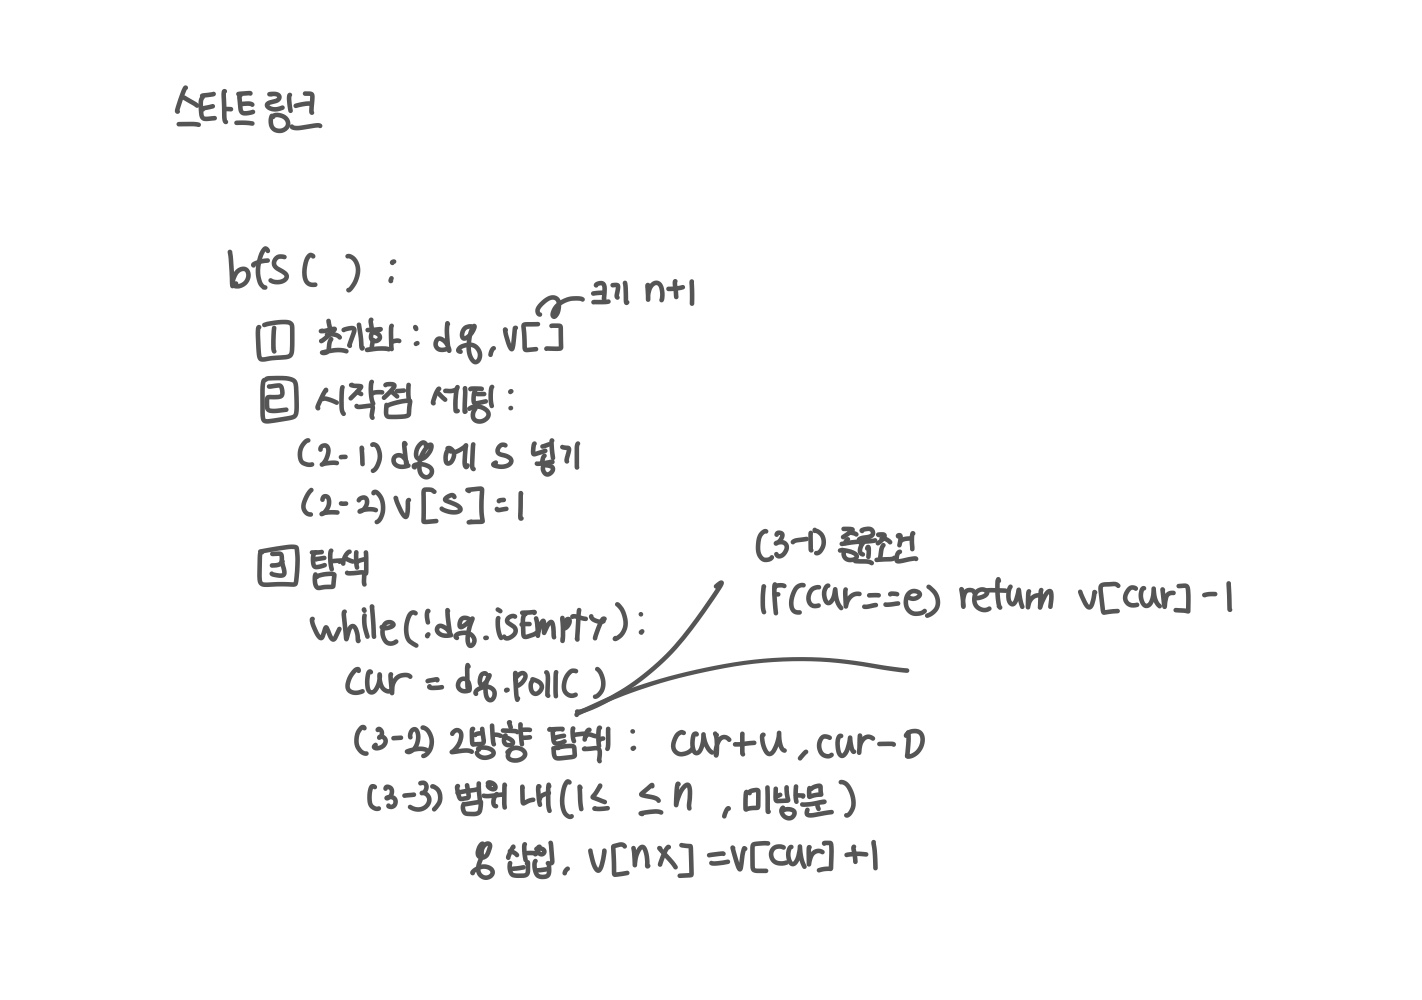 스타트링크
bfs( ) :
크기 n+1
1 초기화 : dq, v[]
2 시작점 세팅 :
(2-1) dq에 S 넣기
(2-2) v[S]=1
3 탐색
while(!dq.isEmpty):
cur = dq.poll( )
(3-1) 종료조건
if(cur==e) return v[cur]-1
(3-2) 2방향 탐색 : cur+u, cur-D
(3-3) 범위 내(1≤ ≤n, 미방문)
q 삽입. v[nx]=v[cur]+1